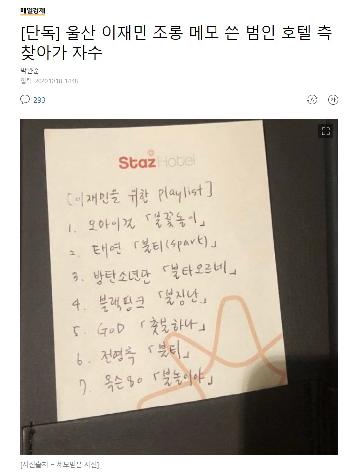 매일경제
[단독] 울산 이재민 조롱 메모 쓴 범인 호텔 측
찾아가 자수
박한순
293
가
Staz Hotel
[이재민을 위한 playlist]
1. 오마이걸 「불꽃놀이」
2. 태연 「불티(spark)」
3. 방탄소년단 「불타오르네」
4. 블랙핑크 「불장난」
5. GoD 「촛불하나」
6. 전영록 「불티」
7. 옥슨80 「불놀이야」
[사진출처 = 제보받은 사진]